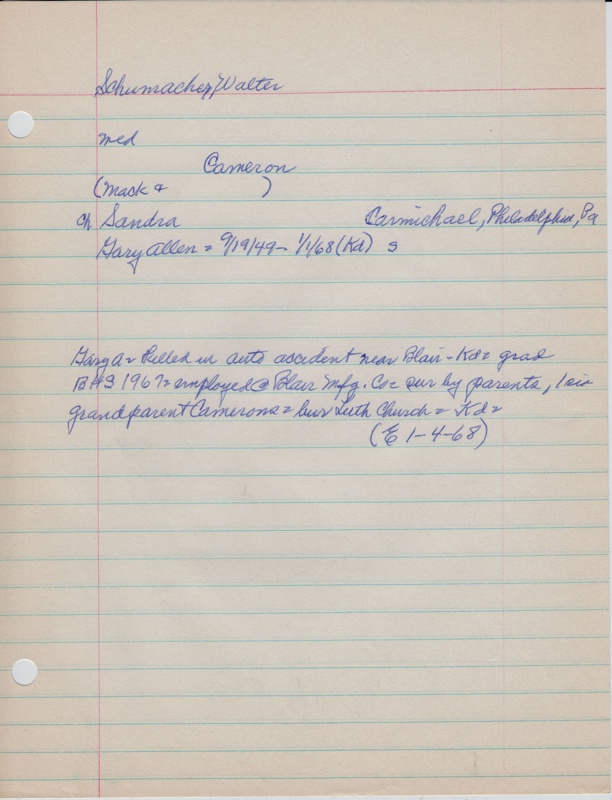 Schumacher, Walter
med
Cameron
(Mack & )
ch Sandra Carmichael, Philadelphia, Pa
Gary Allen = 9/19/49 - 1/1/68 (Kd) s
Gary A = killed in auto accident near Blair - Kd = grad
BHS 1967 = employed @ Blair Mfg. Co = sur by parents, 1 sis
grandparent Camerons = bur Luth Church = Kd =
(E 1-4-68)